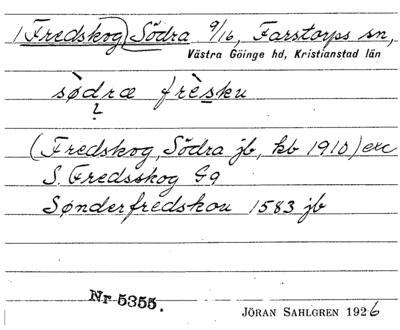 1 Fredskog, Södra 9/16, Farstorps sn,
Västra Göinge hd, Kristianstad län
sødræ frèsku
?
(Fredskog, Södra jb, kb 1910) exc
S. Fredsskog G9
Sønderfredskou 1583 jb
Nr 5355.
JÖRAN SAHLGREN 1926